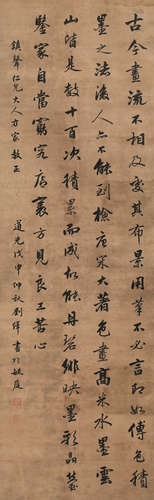 古今畫流不相及處其布景用筆不必言即如傅色積
墨之法後人亦不能到檢唐宋大著色畫高米水墨雲
山皆是數十百次積景而成似能丹碧緋映墨彩晶瑩
鑒家自當窮究店裏方見良工苦心
鎮聲仁兄大人方家教正
道光戊申仲秋劉繹書於皖庭